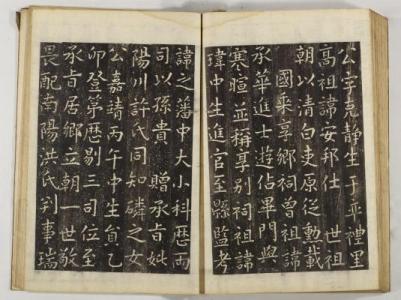 公字克靜生于平禮里
高祖諱安邦仕 世祖
朝以清白吏原從勳載
國乘享鄉祠曾祖諱
承華進士游佔畢門與
寒暄並稱享別祠祖諱
瑋中生進官至縣監考
諱之藩中大小科歷兩
司以孫貴 贈承旨妣
陽川許氏同知磷之女
公嘉靖丙午中生員乙
卯登第歷剔三司位至
承旨居鄉立朝一世敬
畏配南陽洪氏判事瑞